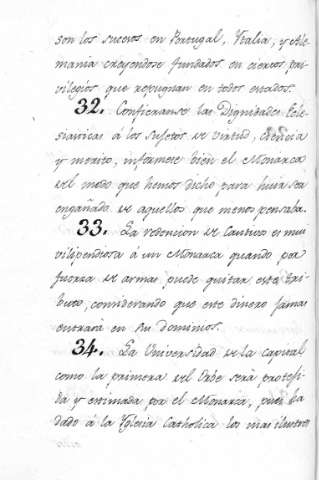 son los sucesos en Portugal, Ytalia, y Ale-
mania creyendose fundados en ciertos pri-
vilegios que repugnan en todos estados.
32. Confieranse las Dignidades Ecle-
siasticas á los sujetos de virtud, ciencia
y merito, informese bien el Monarca
del modo que hemos dicho para huir ser
engañado de aquellos que menos pensaba.
33. La redencion de Cautivos es mui
vilipendiosa á un Monarca quando por
fuerza de armas puede quitar este tri-
buto, considerando que este dinero jamas
entrará en su dominios.
34. La Universidad de la capital
como la primera del Orbe será protegi-
da y estimada por el Monarca, pues ha
dado á la Yglesia Catholica los mas ilustres